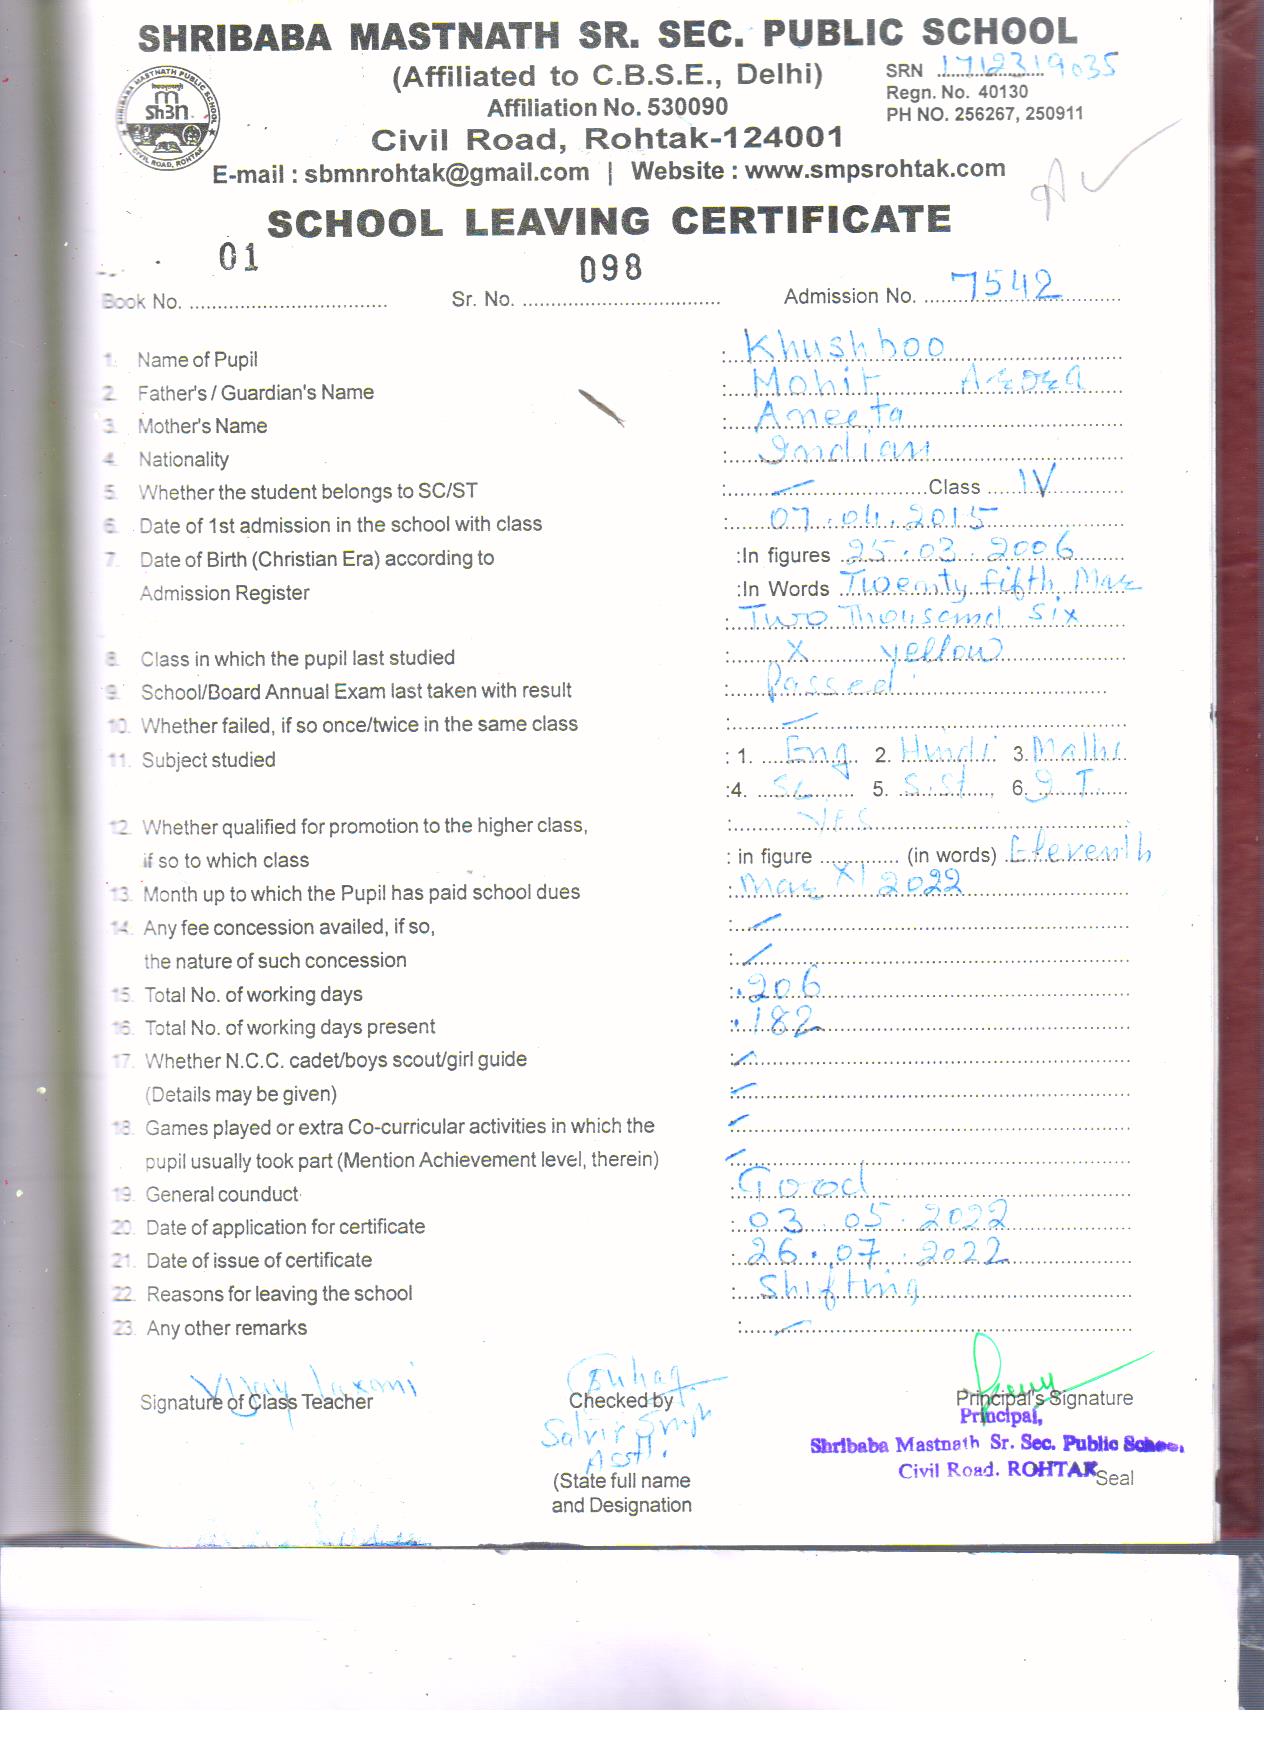 SHRIBABA MASTNATH SR. SEC. PUBLIC SCHOOL
(Affiliated to C.B.S.E., Delhi)
SRN 1712319035
Affiliation No. 530090
Regn. No. 40130
PH NO. 256267, 250911
SHRIBABA MASTNATH PUBLIC SCHOOL
Sh3n
CIVIL ROAD, ROHTAK
Civil Road, Rohtak-124001
E-mail : sbmnrohtak@gmail.com | Website : www.smpsrohtak.com
SCHOOL LEAVING CERTIFICATE
Book No. 01 Sr. No. 098 Admission No. 7542
1. Name of Pupil : Khushboo
2. Father's / Guardian's Name : Mohit Arora
3. Mother's Name : Aneeta
4. Nationality : Indian
5. Whether the student belongs to SC/ST : — Class IV
6. Date of 1st admission in the school with class : 07.04.2015
7. Date of Birth (Christian Era) according to :In figures 25.03.2006
Admission Register :In Words Twenty fifth Mar
: Two Thousand Six
8. Class in which the pupil last studied : X yellow
9. School/Board Annual Exam last taken with result : Passed
10. Whether failed, if so once/twice in the same class : —
11. Subject studied : 1. Eng 2. Hindi 3. Maths
:4. Sc 5. S.St 6. I.T.
12. Whether qualified for promotion to the higher class, : Yes
if so to which class : in figure XI (in words) Eleventh
13. Month up to which the Pupil has paid school dues : Mar 2022
14. Any fee concession availed, if so, : —
the nature of such concession : —
15. Total No. of working days : 206
16. Total No. of working days present : 182
17. Whether N.C.C. cadet/boys scout/girl guide : —
(Details may be given) : —
18. Games played or extra Co-curricular activities in which the : —
pupil usually took part (Mention Achievement level, therein) : —
19. General counduct : Good
20. Date of application for certificate : 03.05.2022
21. Date of issue of certificate : 26.07.2022
22. Reasons for leaving the school : Shifting
23. Any other remarks : —
Vijay Laxmi
Signature of Class Teacher Checked by Principal's Signature
Satvir Singh
Asstt.
Principal,
Shribaba Mastnath Sr. Sec. Public School
Civil Road. ROHTAK
Seal
(State full name
and Designation